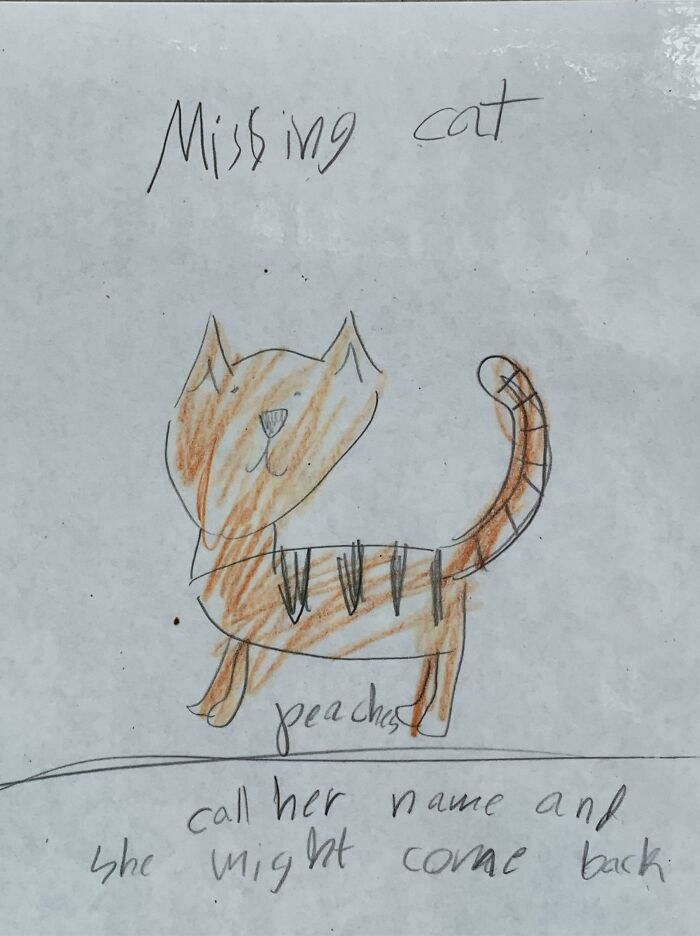 Missing cat
peaches
call her name and
she might come back